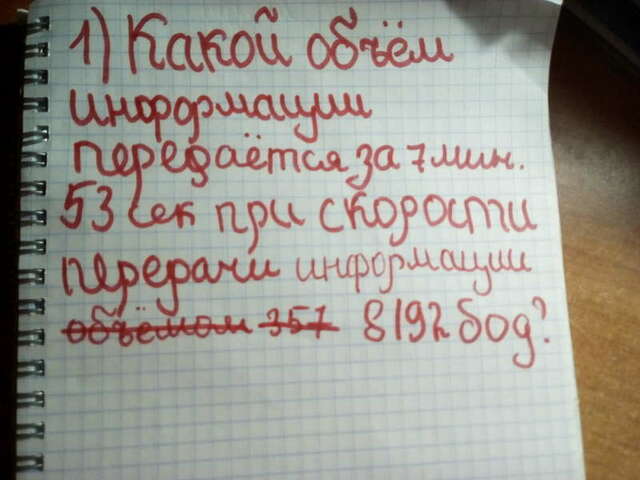 1) Какой объём
информации
передаётся за 7 мин.
53 сек при скорости
передачи информации
объёмом 357 8192 бод?